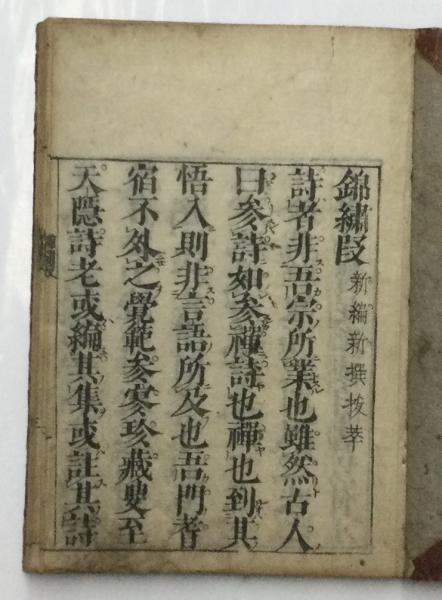 錦繡段 新編新撰抜萃
詩者非吾宗所業也雖然古人
曰參詩如參禪詩也禪也到其
悟入則非言語所及也吾門耆
宿不外之覺範參寥珍藏叟至
天隱詩老或編其集或註其詩